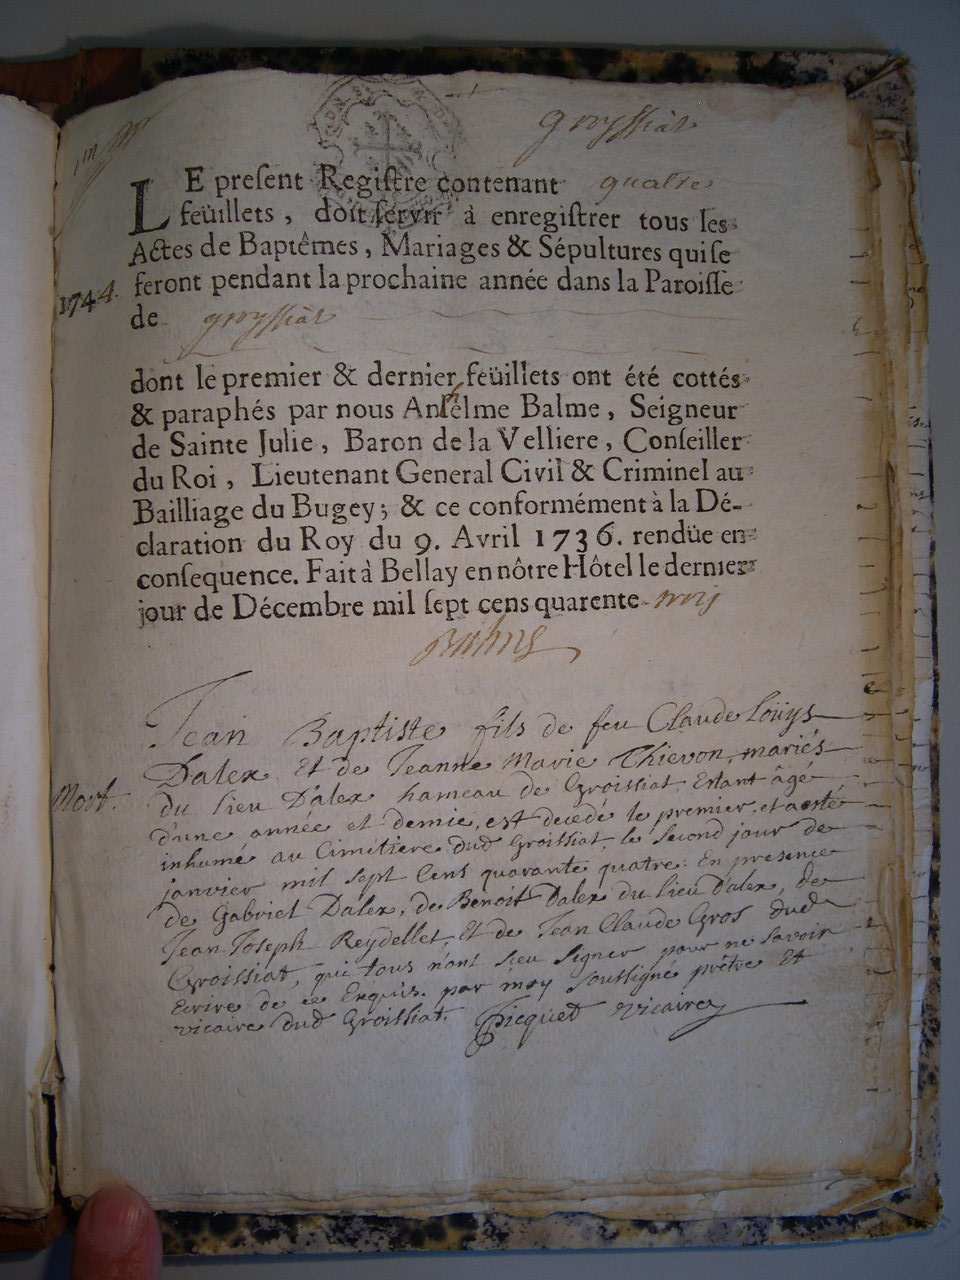 1er
groyssiat
LE present Registre contenant quatre
feüillets, doit servir à enregistrer tous les
Actes de Baptêmes, Mariages & Sépultures qui se
feront pendant la prochaine année dans la Paroisse
1744.
de groyssiat
dont le premier & dernier feüillets ont été cottés
& paraphés par nous Anthelme Balme, Seigneur
de Sainte Julie, Baron de la Velliere, Conseiller
du Roi, Lieutenant General Civil & Criminel au
Bailliage du Bugey; & ce conformément à la Dé-
claration du Roy du 9. Avril 1736. rendüe en
consequence. Fait à Bellay en nôtre Hôtel le dernier
jour de Décembre mil sept cens quarente trois
Balme
Jean Baptiste fils de feu Claude Loüys
Dalex Et de Jeanne Marie Thievon, mariés
Mort.
du lieu D'alex hameau de Groissiat, Estant âgé
d'une année et demie, est decedé le premier, et a esté
inhumé au Cimitiere dud Groissiat, le second jour de
janvier mil sept Cens quarante quatre: En presence
de Gabriel Dalex, de Benoit Dalex du lieu D'alex, de
Jean Joseph Reydellet, Et de Jean Claude Gros dud
Groissiat, qui tous n'ont sçeu signer pour ne sçavoir
Ecrire de ce Enquis. par moy soussigné prêtre Et
vicaire dud Groissiat. Picquet vicaire